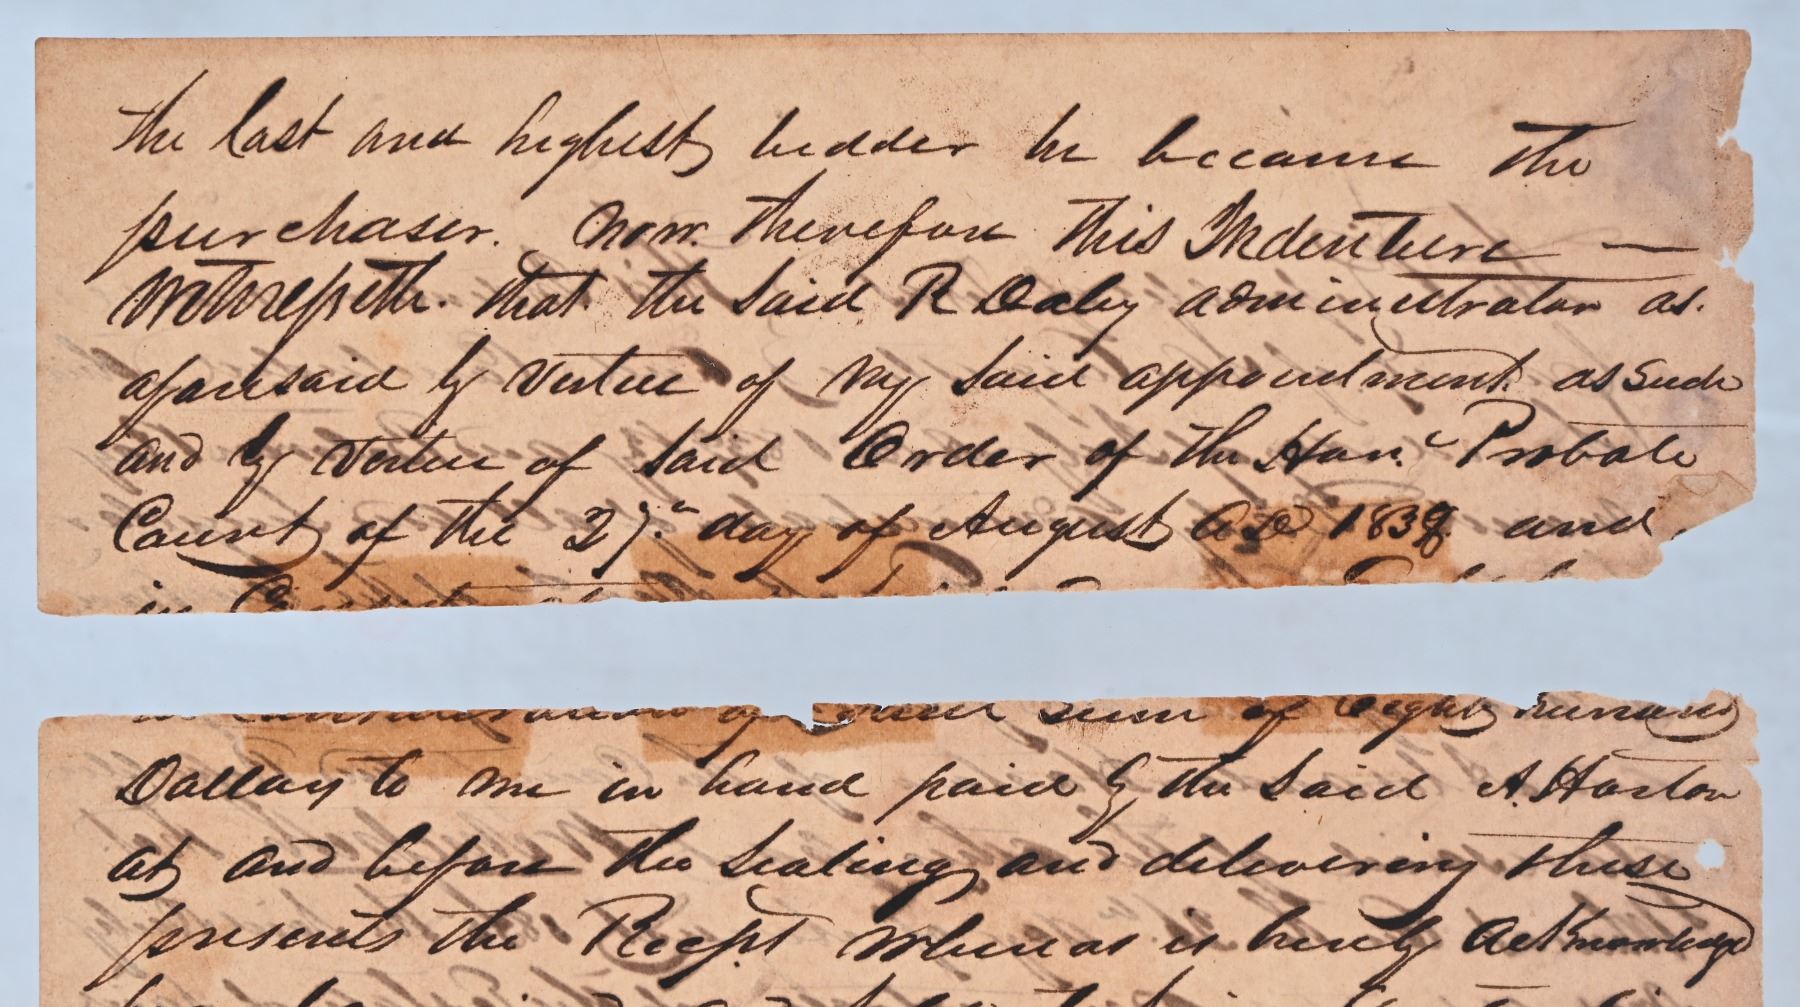 the last and highest bedder he became the
purchaser. Now therefore this Indenture —
Witnesseth. that the said R Daley administrator as.
aforesaid by vertue of my said appointment as Such
and by vertue of said Order of the Hon.e Probate
Court of the 27.th day of August AD 1839. and
in Consideration of said sum of Eight hundred
Dollars to me in hand paid by the said A. Harlow
at and before the sealing and delivering these
presents the Recept whereas is herely acknowledge